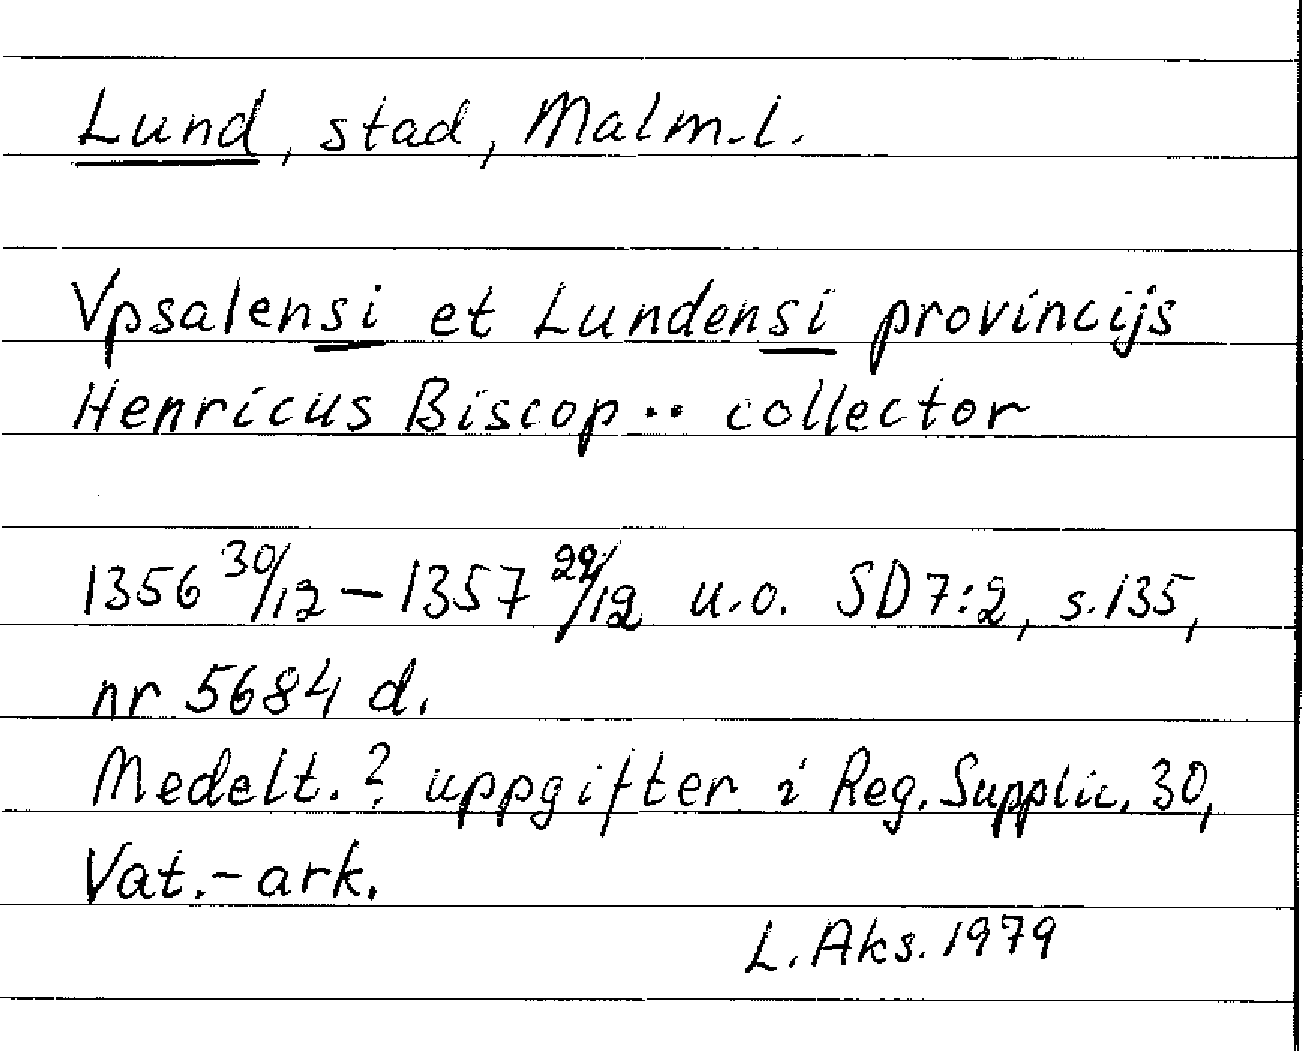 Lund, stad, Malm.l.
Vpsalensi et Lundensi provincijs
Henricus Biscop .. collector
1356 30/12 – 1357 29/12 u.o. SD 7:2, s.135,
nr 5684 d.
Medelt.? uppgifter i Reg. Supplic. 30,
Vat.-ark.
L. Aks. 1979